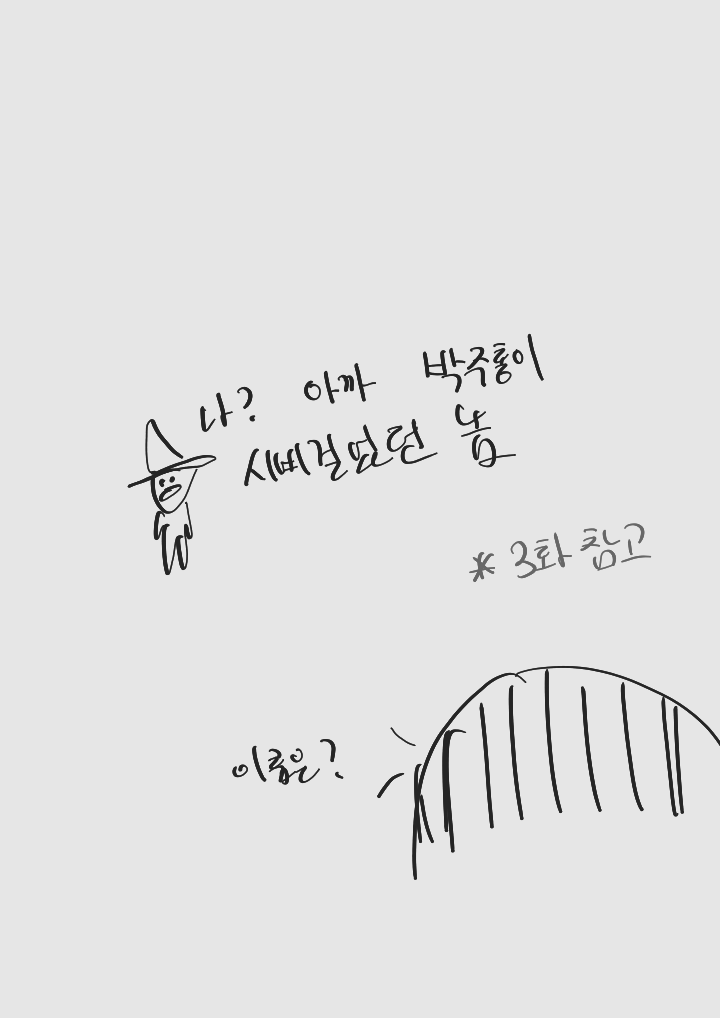 나? 아까 박주홍이
시비걸었던 놈
* 3화 참고
이름은?